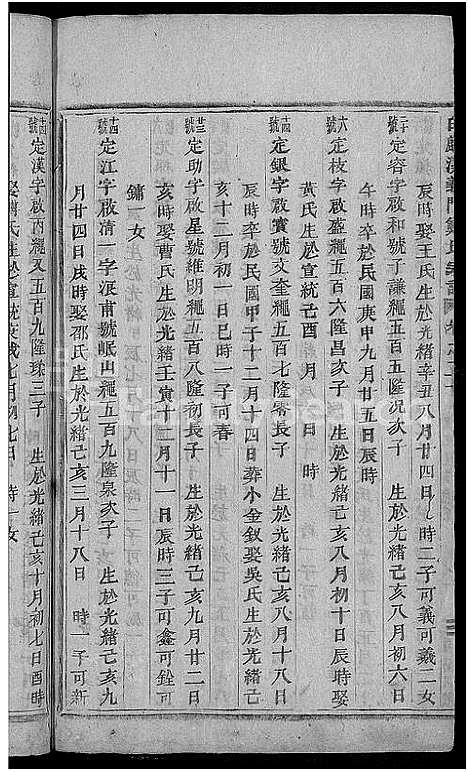 娶王氏生於光緒辛丑八月廿四日 時二子可義可羲一女
二十號 定容字啟和號子謙繩五百五隆況次子 生於光緒己亥八月初六日
午時卒於民國庚申九月廿五日辰時
十六號 定枝字啟盛繩五百六隆昌次子 生於光緒己亥八月初十日辰時娶
黃氏生於宣統己酉 月 日 時
十四號 定銀字啟實號文奎繩五百七隆零長子 生於光緒己亥八月十八日
辰時卒於民國甲子十二月十四日葬小金釵娶吳氏生於光緒己
亥十二月初一日巳時一子可春
廿三號 定助字啟星號維明繩五百八隆初長子 生於光緒己亥九月廿二日
亥時娶曹氏生於光緒壬寅十二月十一日辰時三子可鑫可銓可
鏞一女
十四號 定江字啟清一字浪甫號岷山繩五百九隆泉次子 生於光緒己亥九
月廿四日戌時娶邵氏生於光緒己亥三月十八日 時一子可新
十四號 定漢字啟丙繩又五百九隆球三子 生於光緒己亥十月初七日酉時
娶 氏生於宣統 七月初七日 時一女